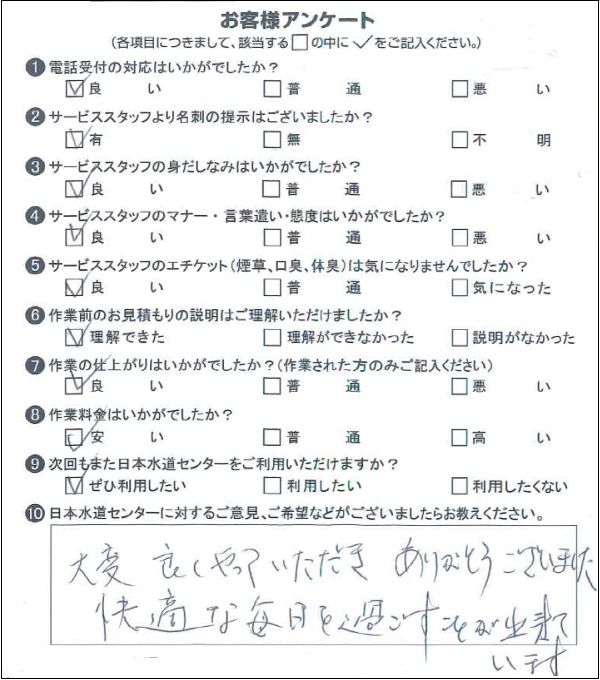 お客様アンケート
(各項目につきまして、該当する□の中に✓をご記入ください。)
❶電話受付の対応はいかがでしたか?
☑良い □普通 □悪い
❷サービススタッフより名刺の提示はございましたか?
☑有 □無 □不明
❸サービススタッフの身だしなみはいかがでしたか?
☑良い □普通 □悪い
❹サービススタッフのマナー・言葉遣い・態度はいかがでしたか?
☑良い □普通 □悪い
❺サービススタッフのエチケット(煙草、口臭、体臭)は気になりませんでしたか?
☑良い □普通 □気になった
❻作業前のお見積もりの説明はご理解いただけましたか?
☑理解できた □理解ができなかった □説明がなかった
❼作業の仕上がりはいかがでしたか?(作業された方のみご記入ください)
☑良い □普通 □悪い
❽作業料金はいかがでしたか?
☑安い □普通 □高い
❾次回もまた日本水道センターをご利用いただけますか?
☑ぜひ利用したい □利用したい □利用したくない
❿日本水道センターに対するご意見、ご希望などがございましたらお教えください。
大変 良くやっていただき ありがとうございました
快適な毎日を過ごすことが出来て
います